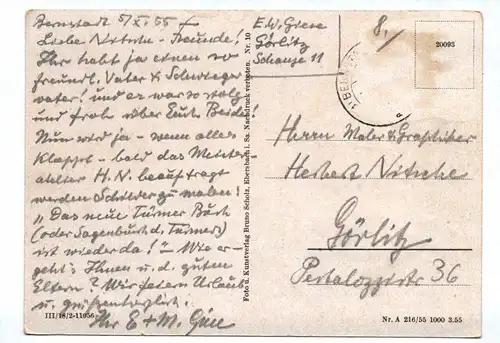 Bernstadt 5/XI 55
Liebe Nitsche-Freunde!
Ihr habt ja einen so
freundl. Vater & Schwieger
vater! und er war so stolz
und froh über Euch Beide!
Nun wird ja - wenn alles
klappt - bald das Meister
atelier H.N. beauftragt
werden Schilder zu malen!
"Das neue Türmer Buch
(oder Sagenbuch d. Türmers)
ist wieder da!" - Wie er-
geht's Ihnen u. d. guten
Eltern? Wir feiern Urlaub
u. grüßen herzlich.
Ihr E + M. Giese
III/18/2-11056
Foto u. Kunstverlag Bruno Scholz, Ebersbach i. Sa. Nachdruck verboten. Nr. 10
E.W. Giese
Görlitz
Schanze 11
8,/
20093
Herrn Maler & Graphiker
Herbert Nitsche
Görlitz
Pestalozzistr 36
Nr. A 216/55 1000 3.55